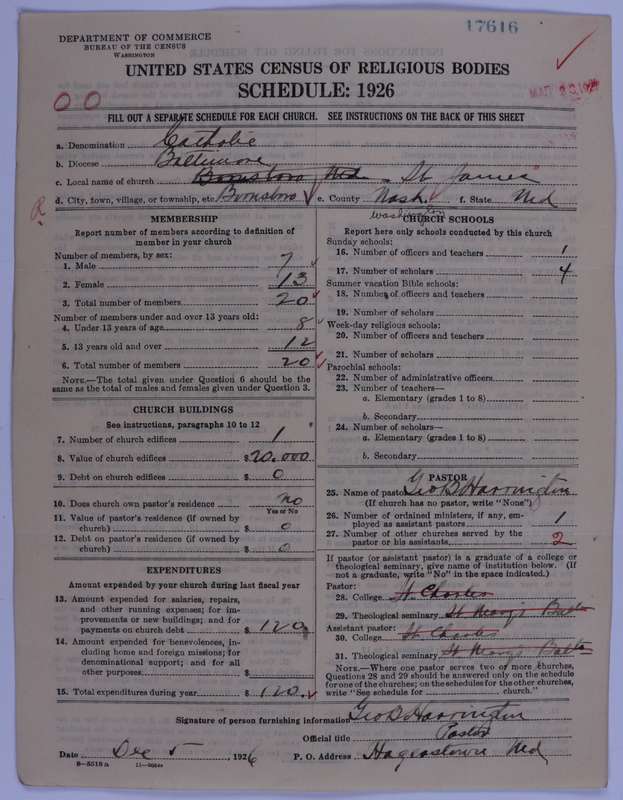 17616
DEPARTMENT OF COMMERCE
BUREAU OF THE CENSUS
WASHINGTON
UNITED STATES CENSUS OF RELIGIOUS BODIES
SCHEDULE: 1926
FILL OUT A SEPARATE SCHEDULE FOR EACH CHURCH. SEE INSTRUCTIONS ON THE BACK OF THIS SHEET
a. Denomination Catholic
b. Diocese Baltimore
c. Local name of church Boonsboro Md - St James
d. City, town, village, or township, etc. Boonsboro e. County Wash. f. State Md
Washington
MEMBERSHIP
Report number of members according to definition of
member in your church
Number of members, by sex:
1. Male 7
2. Female 13
3. Total number of members 20
Number of members under and over 13 years old:
4. Under 13 years of age 8
5. 13 years old and over 12
6. Total number of members 20
NOTE.—The total given under Question 6 should be the
same as the total of males and females given under Question 3.
CHURCH BUILDINGS
See instructions, paragraphs 10 to 12
7. Number of church edifices 1
8. Value of church edifices $20.000
9. Debt on church edifices $0
10. Does church own pastor's residence no
Yes or No
11. Value of pastor's residence (if owned by
church) $0
12. Debt on pastor's residence (if owned by
church) $0
EXPENDITURES
Amount expended by your church during last fiscal year
13. Amount expended for salaries, repairs,
and other running expenses; for im-
provements or new buildings; and for
payments on church debt $120
14. Amount expended for benevolences, in-
cluding home and foreign missions; for
denominational support; and for all
other purposes $
15. Total expenditures during year $120.
CHURCH SCHOOLS
Report here only schools conducted by this church
Sunday schools:
16. Number of officers and teachers 1
17. Number of scholars 4
Summer vacation Bible schools:
18. Number of officers and teachers
19. Number of scholars
Week-day religious schools:
20. Number of officers and teachers
21. Number of scholars
Parochial schools:
22. Number of administrative officers
23. Number of teachers—
a. Elementary (grades 1 to 8)
b. Secondary
24. Number of scholars—
a. Elementary (grades 1 to 8)
b. Secondary
PASTOR
25. Name of pastor Geo B Harrington
(If church has no pastor, write "None")
26. Number of ordained ministers, if any, em-
ployed as assistant pastors 1
27. Number of other churches served by the
pastor or his assistants 2
If pastor (or assistant pastor) is a graduate of a college or
theological seminary, give name of institution below. (If
not a graduate, write "No" in the space indicated.)
Pastor:
28. College St Charles
29. Theological seminary St Mary's Balto
Assistant pastor:
30. College St Charles
31. Theological seminary St Mary's Balto
NOTE.—Where one pastor serves two or more churches,
Questions 28 and 29 should be answered only on the schedule
for one of the churches; on the schedules for the other churches,
write "See schedule for church."
Signature of person furnishing information Geo B Harrington
Official title Pastor
Date Dec 5, 1926 P. O. Address Hagerstown Md
8-5518a